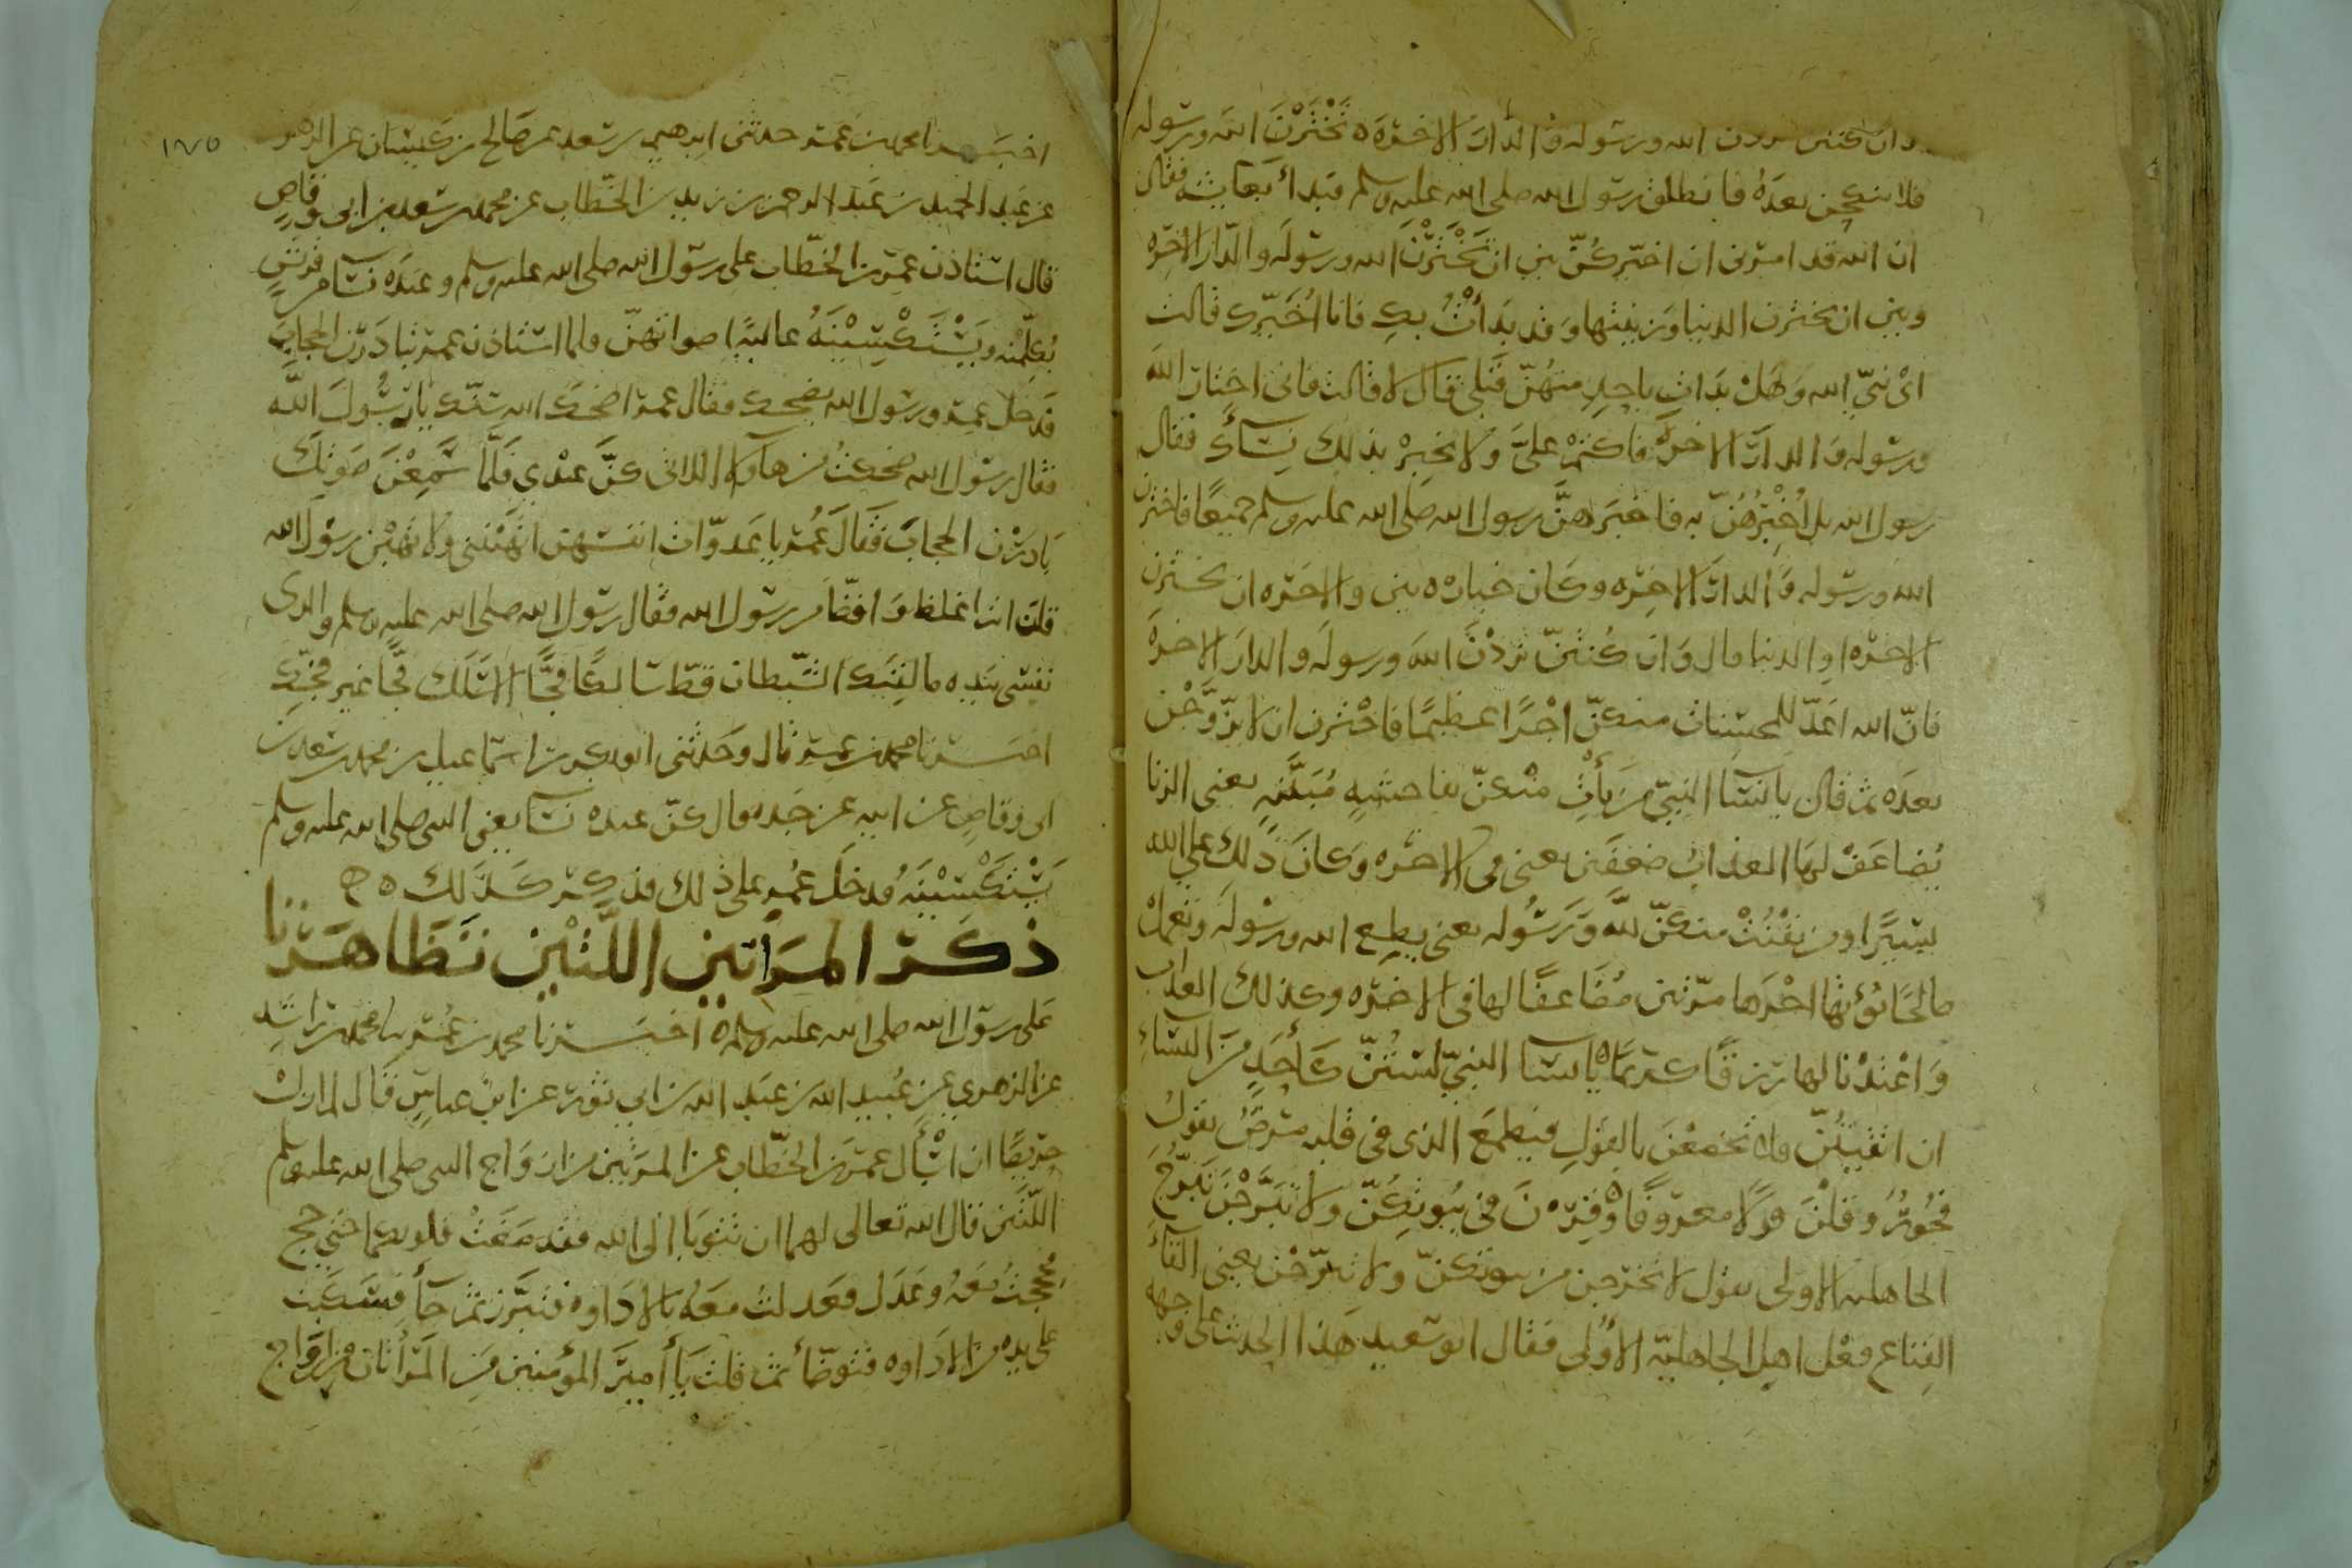 وان كنتن تردن الله ورسوله والدار الاخرة تَخْتَرْنَ الله ورسوله
فلا ينكحن بعدَهُ فانطلق رسول الله صلى الله عليه وسلم فبدأ بعايشه فقال
ان الله قد امرنى ان اخيّركُنّ بين ان تَخْتَرْنَ الله ورسولَه والدّار الاخرَه
وبين ان تخترن الدنيا وزينتها وقد بَدَأتُ بكِ فانا اُخَيّرك قالت
اىْ نبىّ الله وَهَلْ بَدَات باحدٍ منهُنّ قَبْلى قال لا قالت فانى اختار الله
ورسوله والدارَ الاخرة فاكتُمْ علىَّ ولا تخبِرْ بذلك نِسَآءَك فقال
رسول الله بل اُخْبِرُهُنّ به فاخبَرَهنَّ رسول الله صلى الله عليه وسلم جميعًا فاخترن
الله ورسوله والدارَ الاخِرَه وكان خياره بين والاخَره ان يخترن
الاخرَه او الدنيا قال وَان كُنتنّ تُردْنَ اللهَ ورسولَه والدارَ الاخرةَ
فانّ الله اعَدّ للمحسنات منكنّ اجْرًا عظيمًا فاخترن ان لا يتزوَّجْن
بعدَه ثم قال يا نسآ النبىّ مَن يَأْتِ منْكنّ بفاحشهٍ مُبَيِّنَهٍ يعنى الزنا
يُضاعَفْ لهَا العذاب ضعفَين يعنى فى الاخرَه وَكانَ ذَلك على الله
يسِيرًا ومن يَقْنُتْ منكنّ للّهِ وَرَسُوله يعنى يطع الله ورسولَه وتعملْ
صالحًا نُؤتها اجْرَها مرّتين مُضَاعفًا لها فى الاخرَه وكذلك العذاب
وَاعْتدْنا لها رِزقًا كريمًا يا نسآ النبىّ لسْتُنّ كأَحَدٍ مِنَ النسَاءِ
ان اتقيتُنّ فلا تخضعْنَ بالقول فيطمعَ الذى فى قلبه مَرضٌ يقولُ
فُجُورٌ وقلنَ قولًا معروفًا وقِرْنَ فى بُيوتكُنّ ولا تبَرّجْنَ تَبَرّجَ
الجاهليه الاولى يقول لا تخرجن من بيوتكنّ ولا تبرّجْن يعنى القآءَ
القِناع فعْل اهل الجاهليّه الاُولى فقال ابو سَعيد هَذا الحدث على وجهه
١٧٥
اخبَرنا محمد بن عُمَر حدثنى ابرهيم بن سعد عن صَالح بن كَيسَان عن الزهرى
عن عَبد الحميد بن عَبد الرحمن بن زيد بن الخَطّاب عن محمد بن سَعد بن ابى وقاصٍ
قال استاذن عمر بن الخَطّاب على رسُول الله صلى الله عليه وسلم وعندَه نسآ من قريشٍ
يُكلِّمْنه وَيَسْتَكْسِيْنَهُ عاليةً اصواتهنّ فلما استاذن عمر تبادَرْن الحجابَ
فَدخلَ عمر ورسُول الله يضحك فقال عمر اضحكَ الله سِنّك يا رَسُولَ اللّه
فقال رسُول الله ضحكتُ من هآولآ اللاتى كنَّ عنْدِي فَلَمَّا سَمِعْنَ صَوتكَ
بَادرْن الحجابَ فَقالَ عُمر يا عَدوّات انفسهنّ اتَهَبْننى ولا تهَبْن رسُول الله
قلن انت اغلظ وَافظّ من رسُول الله فقال رسُول الله صلى الله عليه وسلم والذى
نفسى بيَدِه ما لقِيَك الشَّيطان قطّ سَالِكًا فجًّا الا سَلَك فجًّا غير فجّك
اخبَرنا محمد بن عمر قال وحَدثنى ابو بكر بن اسماعيل بن محمد بن سَعد بن
ابى وقاصٍ عن ابيه عن جَده قال كنّ عنده نسآ يعنى النبى صلى الله عليه وسلم
يَسْتَكْسِيْنَهُ فدخلَ عُمر على ذلك فذكِر كَذَلك ه
ذكَر المرَأتين اللَّتيْن تَظَاهَرتا
عَلى رسُول الله صلى الله عليه وسلم ه اخبَرنا محمد بن عُمر نا محمد بن راشد
عن الزهري عن عُبيد الله بن عَبد الله بن ابي ثور عن ابن عباسٍ قال لم ازلْ
حَرِيصًا ان اسْأل عمر بن الخَطّاب عن المرَتين من ازوَاج النبى صلى الله عليه وسلم
اللَّتَين قال الله تعالى لهما ان تتوبَا الَى الله فقد صَغَتْ قلوبكما حتى حج
فحججتُ مَعَهُ وعَدَل فعَدلت معَهُ بالادَاوه فتبَرّز ثم جآ فسَكبت
على يده من الادَاوه فتوضّأ ثم قلت يَا أميرَ المؤمنين مَن المَرْأَتان من ازوَاج